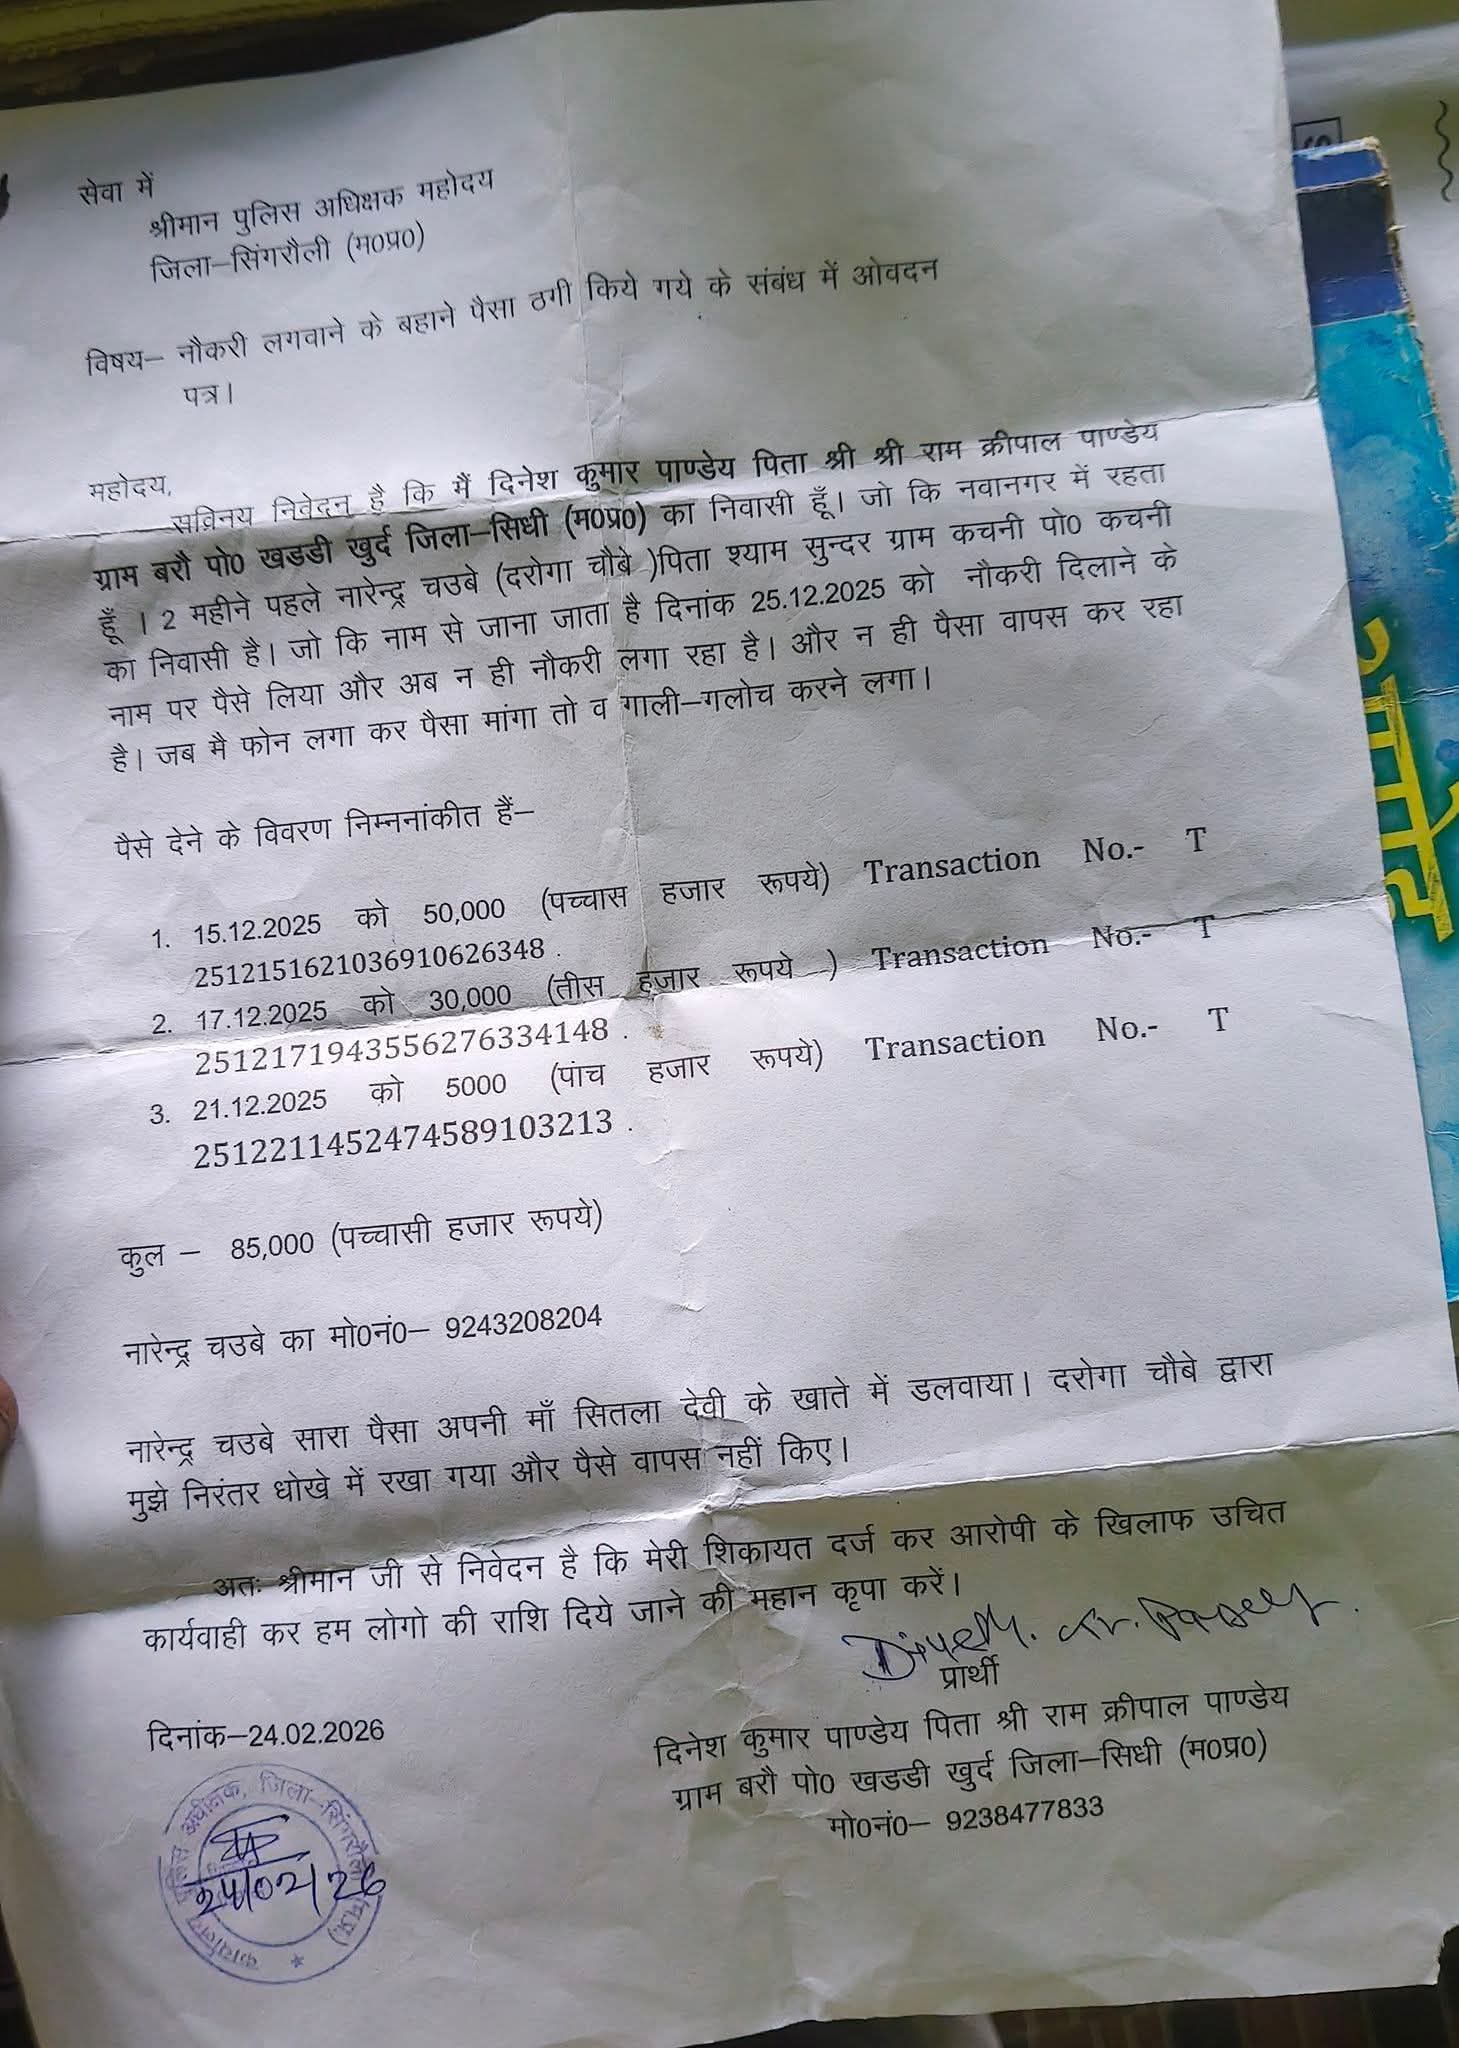 सेवा में
श्रीमान पुलिस अधिक्षक महोदय
जिला–सिंगरौली (म0प्र0)
विषय– नौकरी लगवाने के बहाने पैसा ठगी किये गये के संबंध में ओवदन
पत्र।
महोदय,
सविनय निवेदन है कि मैं दिनेश कुमार पाण्डेय पिता श्री श्री राम क्रीपाल पाण्डेय
ग्राम बरौ पो0 खडडी खुर्द जिला–सिधी (म0प्र0) का निवासी हूँ। जो कि नवानगर में रहता
हूँ । 2 महीने पहले नारेन्द्र चउबे (दरोगा चौबे )पिता श्याम सुन्दर ग्राम कचनी पो0 कचनी
का निवासी है। जो कि नाम से जाना जाता है दिनांक 25.12.2025 को नौकरी दिलाने के
नाम पर पैसे लिया और अब न ही नौकरी लगा रहा है। और न ही पैसा वापस कर रहा
है। जब मै फोन लगा कर पैसा मांगा तो व गाली–गलोच करने लगा।
पैसे देने के विवरण निम्ननांकीत हैं–
1. 15.12.2025 को 50,000 (पच्चास हजार रूपये) Transaction No.- T
2512151621036910626348 .
2. 17.12.2025 को 30,000 (तीस हजार रूपये ) Transaction No.- T
2512171943556276334148 .
3. 21.12.2025 को 5000 (पांच हजार रूपये) Transaction No.- T
2512211452474589103213 .
कुल – 85,000 (पच्चासी हजार रूपये)
नारेन्द्र चउबे का मो0नं0– 9243208204
नारेन्द्र चउबे सारा पैसा अपनी माँ सितला देवी के खाते में डलवाया। दरोगा चौबे द्वारा
मुझे निरंतर धोखे में रखा गया और पैसे वापस नहीं किए।
अतः श्रीमान जी से निवेदन है कि मेरी शिकायत दर्ज कर आरोपी के खिलाफ उचित
कार्यवाही कर हम लोगो की राशि दिये जाने की महान कृपा करें।
प्रार्थी
दिनेश कुमार पाण्डेय पिता श्री राम क्रीपाल पाण्डेय
ग्राम बरौ पो0 खडडी खुर्द जिला–सिधी (म0प्र0)
मो0नं0– 9238477833
दिनांक–24.02.2026
कार्यालय पुलिस अधीक्षक, जिला–सिंगरौली (म.प्र.)
24/02/26